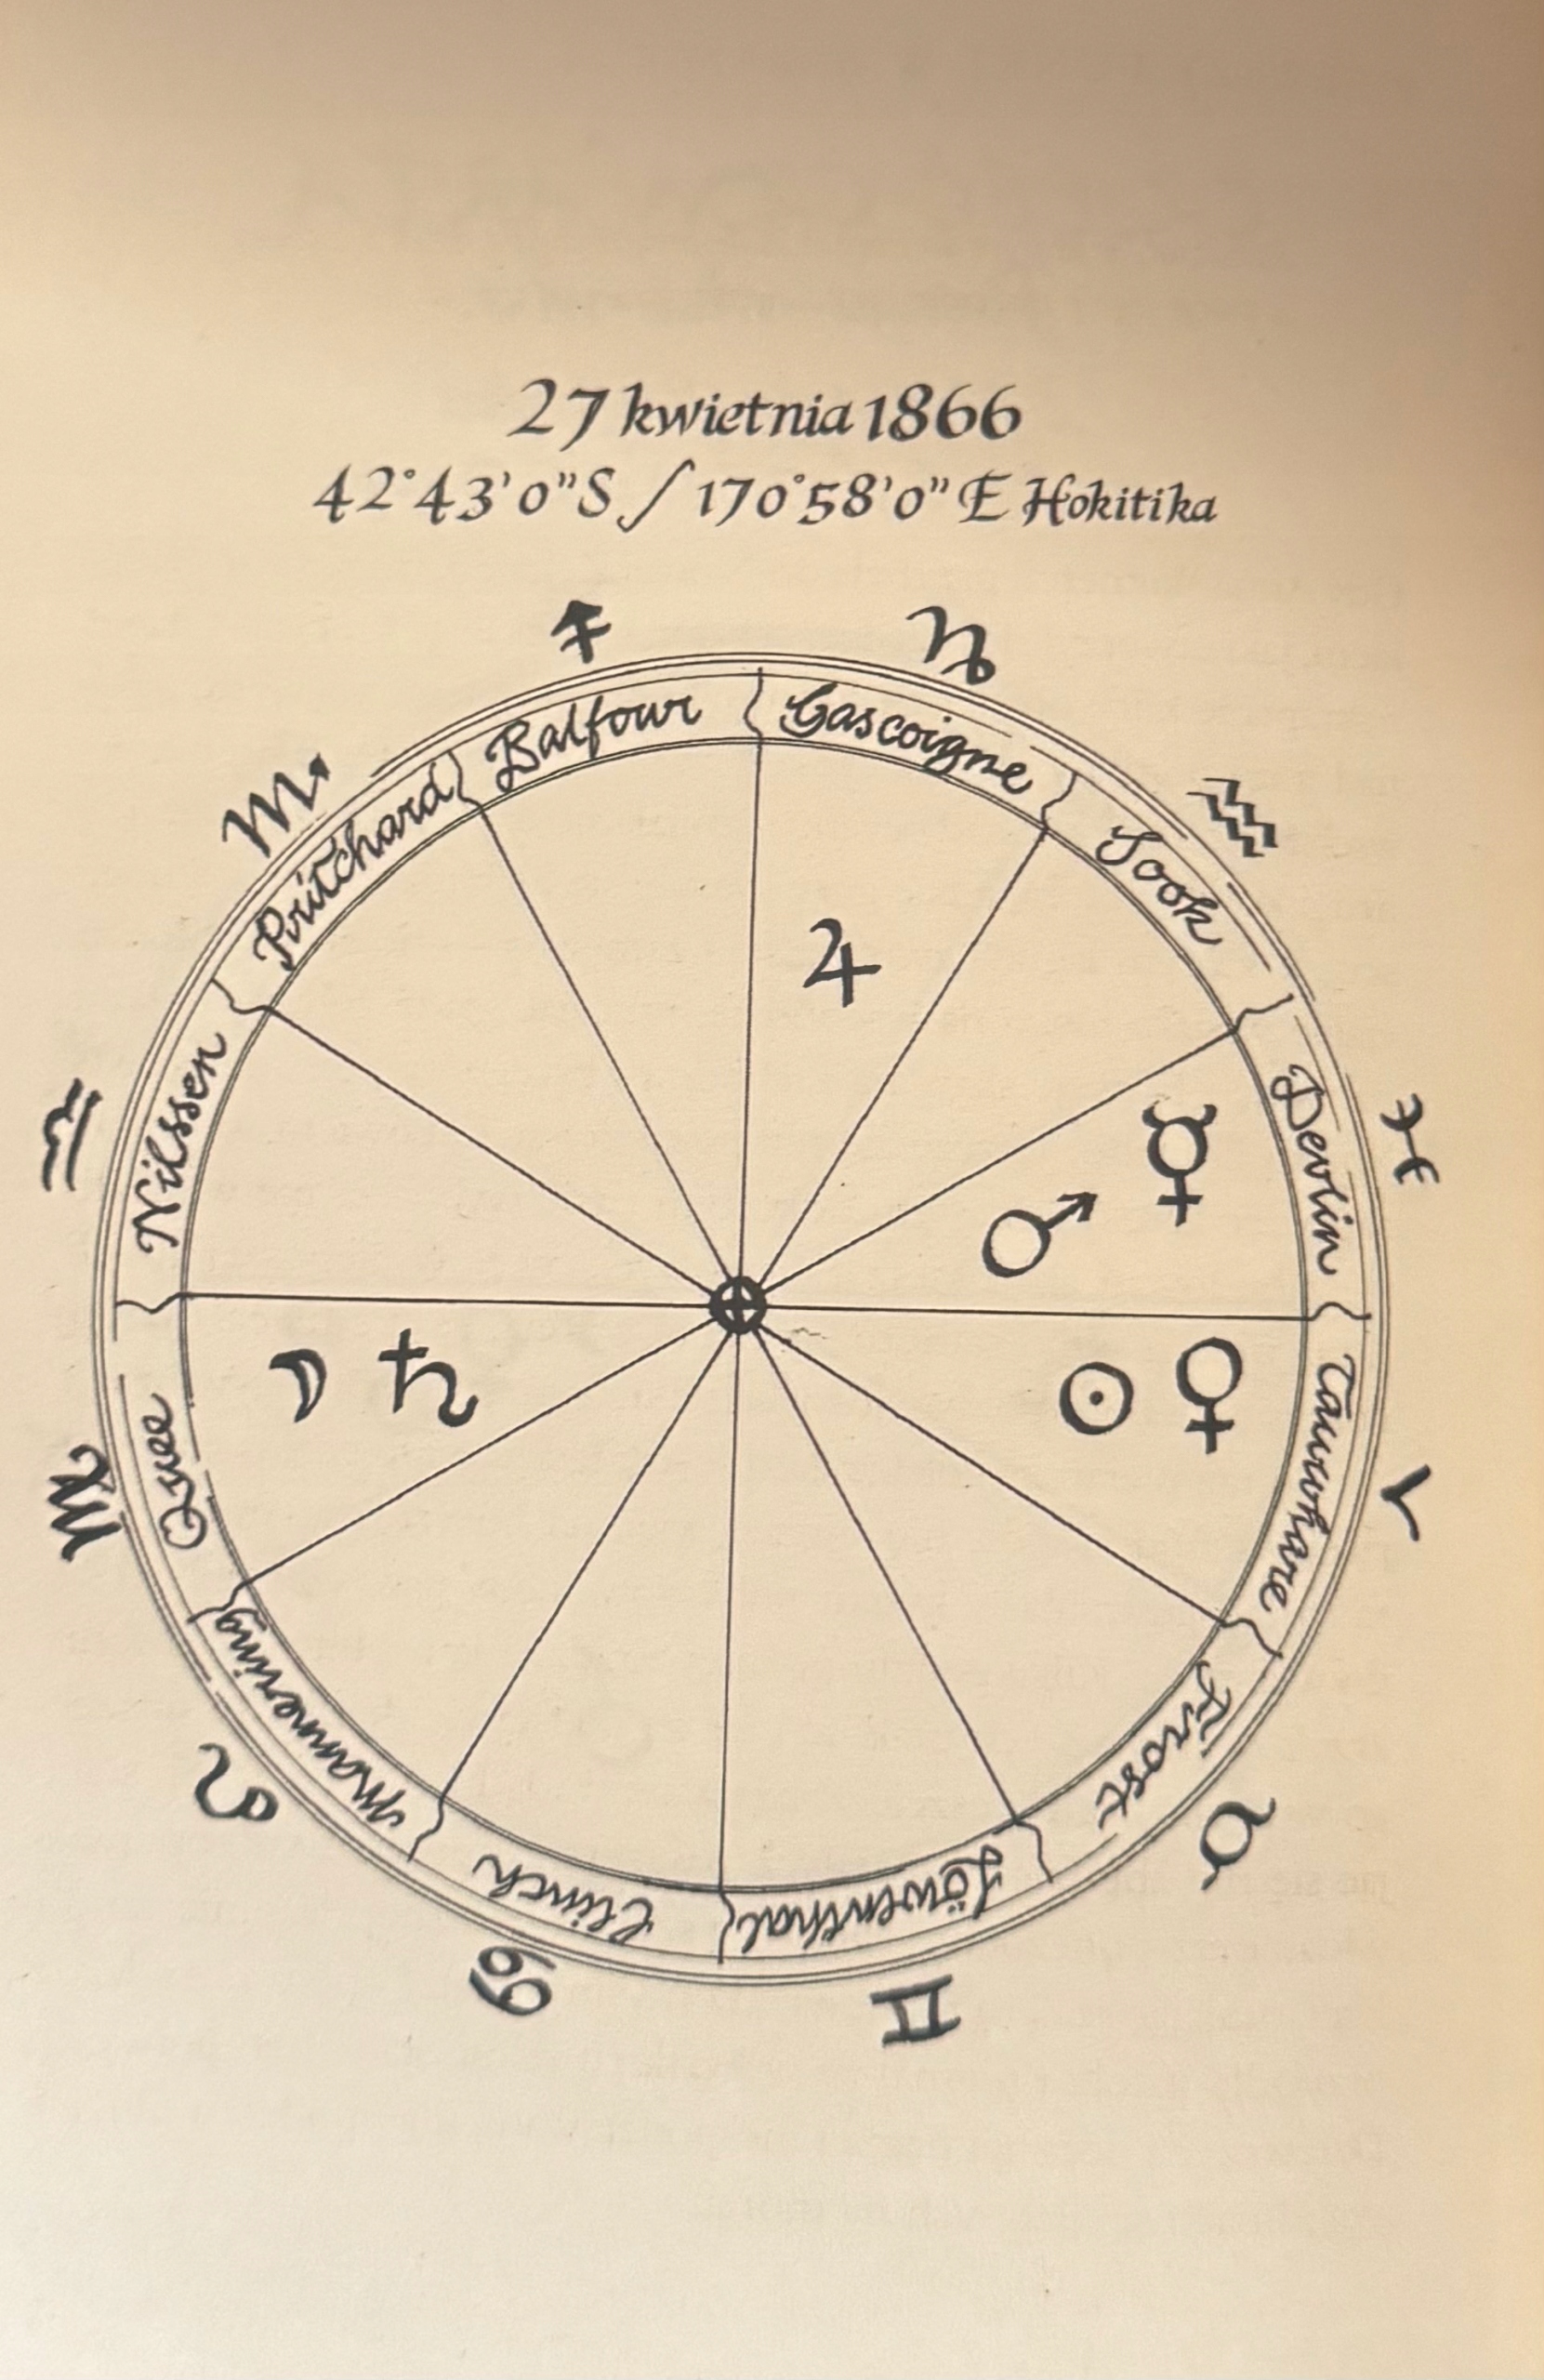 27 kwietnia 1866
42°43'0"S / 170°58'0"E Hokitika
♐ ♑ ♒ ♓ ♈ ♉ ♊ ♋ ♌ ♍ ♎ ♏
Balfour
Gascoigne
Sook
Devlin
Tauwhare
Frost
Löwenthal
Clinch
Mannering
Quee
Nilssen
Pritchard
♃
☿
♂
☉ ♀
☽ ♄
⊕